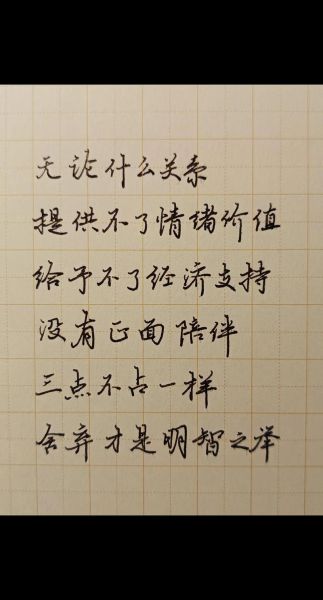 无论什么关系
提供不了情绪价值
给予不了经济支持
没有正面陪伴
三点不占一样
舍弃才是明智之举